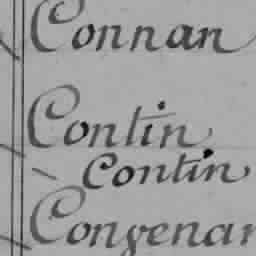 Connan
Contin
Contin
Congenar